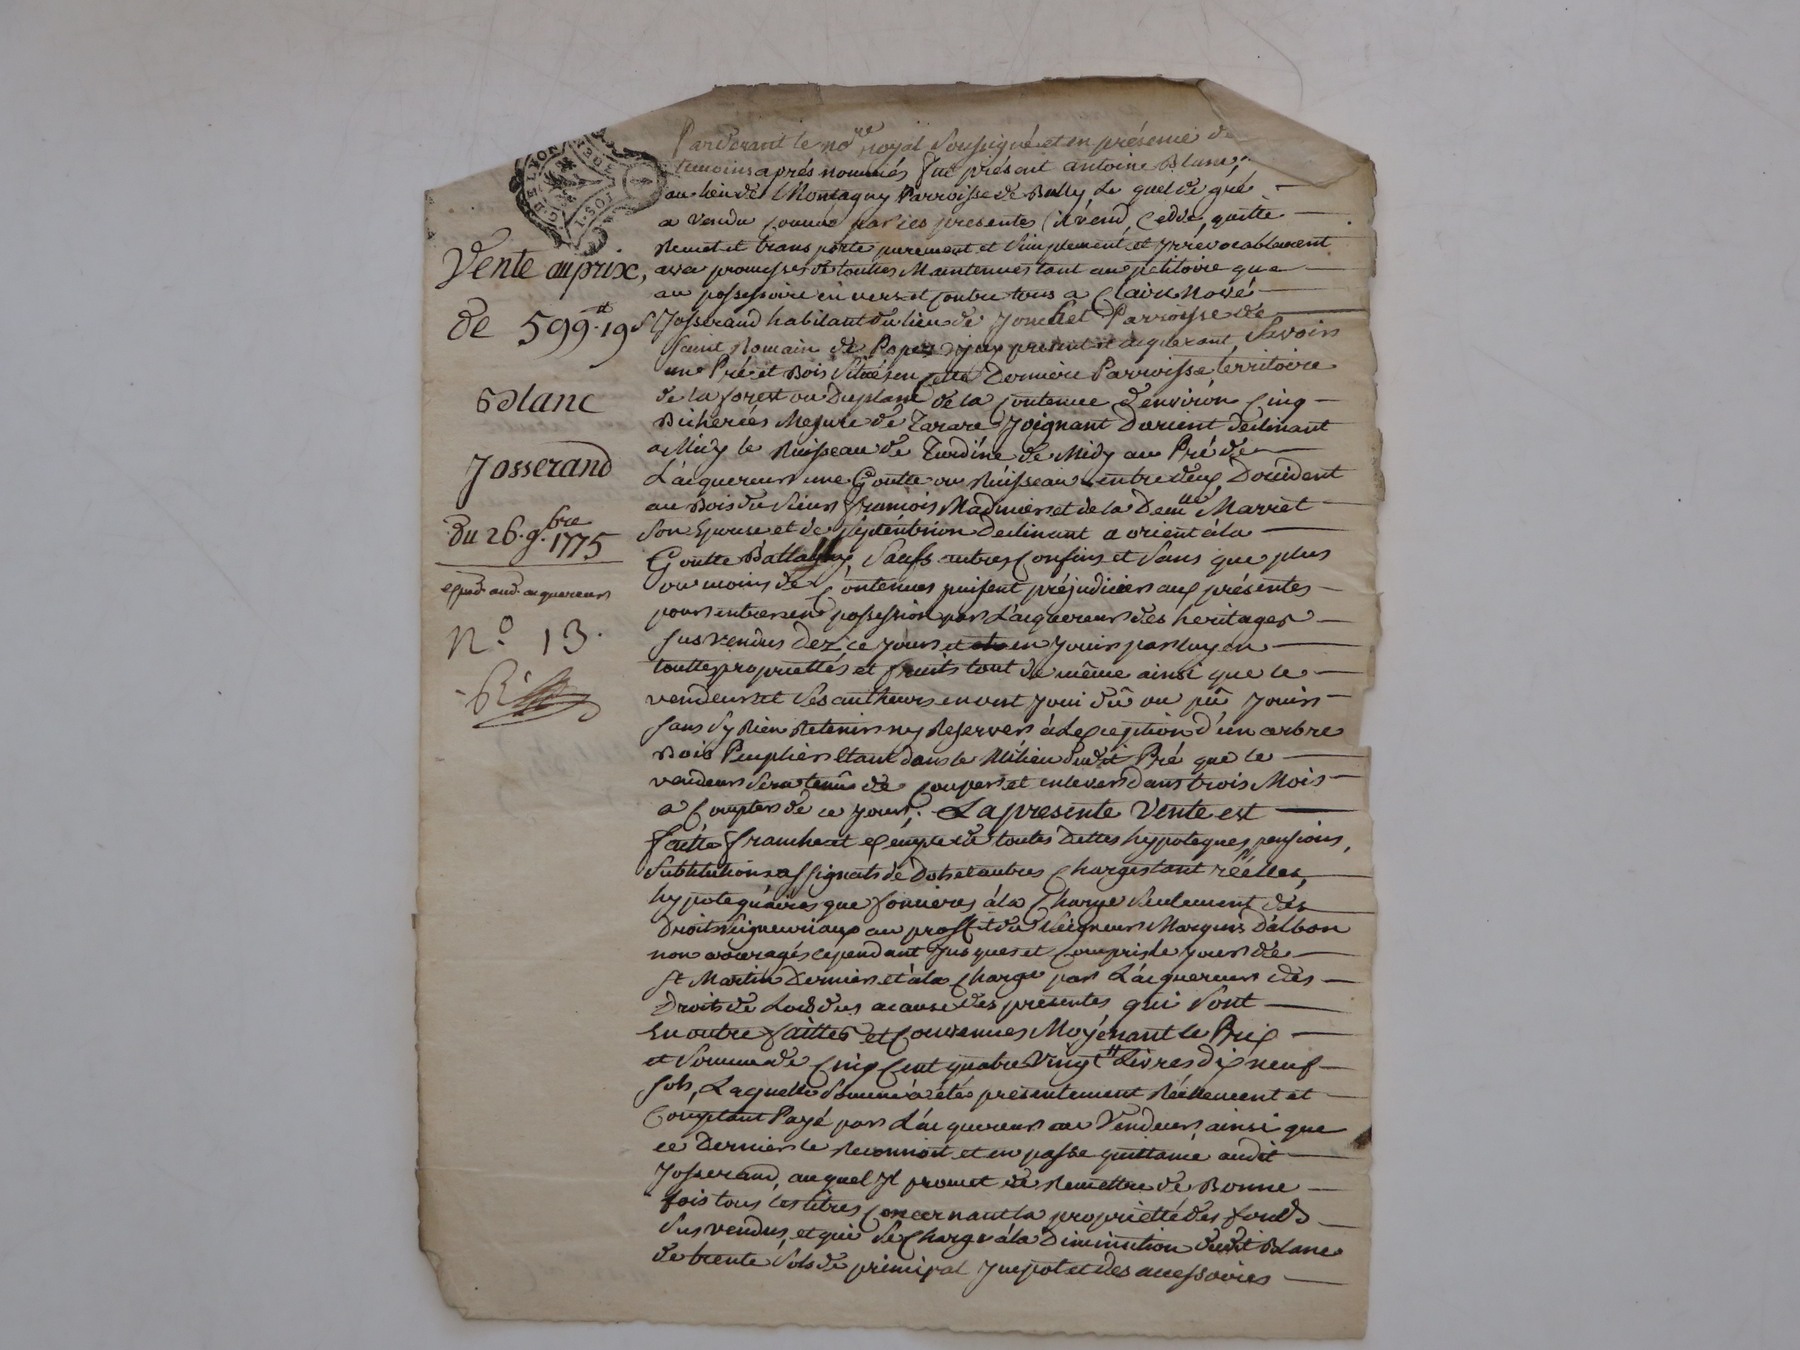 G. DE LYON
2. SOLS
Vente au prix,
de 599.₶ 19 s
Blanc
Josserand
du 26. 9.bre 1775
exped. aud. acquereur
N.o 13.
Pardevant le no.re royal soussigné et en présence de
temoins aprés nommés fut présent antoine Blanc,
au lieu de Montagny Parroisse de Bully, Le quel de gré
a vendu comme par ces presentes il vend, cedde, quitte
Remet et transporte purement et simplement et Yrrevocablement
avec promesses de touttes Maintenues tant au petitoire que
au possessoire envers et contre tous a Claire Noié
Josserand habitant du lieu de Jonchet Parroisse de
saint Romain de Popez Dijeux present et acquerant, Savoir
un Pré et Bois situés en cette Derniere Parroisse territoire
de la forest ou Duplane de la contenue d'environ cinq
Bicherées Mesure de Tarare Joignant D'orient declinant
a Midy le Ruisseau de Turdine de Midy au Pré de
L'acquereur une Goutte ou Ruisseau entre deux, D'occident
au Bois du sieur françois Madinier et de la Dem.lle Marriet
son Epouse et de septentrion declinant a orient à la
Goutte Battalyny, saufs autres confins et sans que plus
ou moins de contenues puissent préjudicier aux présentes
pour entrer en possession par L'acquereur des heritages
susvendus dez ce jour et en Jouir par luy en
touttes propriettés et fruits tout de même ainsi que le
vendeur et ses autheurs en ont Joui dû ou pû Jouir
sans s'y Rien Retenir ny Reserver à L'exception d'un arbre
Bois Peuplier étant dans le Milieu dudit Pré que le
vendeur sera tenû de couper et enlever dans trois Mois
a compter de ce jour; La presente Vente est
faitte franche et exempte de toutes Dettes hypoteques, pensions,
substitutions assignats de Dots et autres charges tant réelles,
hypotequaires que foncieres à la charge seulement des
Droits seigneuriaux au proffit du seigneur Marquis D'albon
non arreragés cependant jusques et compris le jour de
St Martin Dernier et à la charge par L'acquereur des
Droits de Lods dus a cause des presentes qui sont
En outre faittes et convenues Moyénant le Prix
et somme de cinq cent quatre Vingt Livres dix neuf
sols, Laquelle somme a été présentement Réellement et
comptant Payé par L'acquereur au Vendeur, ainsi que
ce Dernier le Reconnoit et en passe quittance audit
Josserand, auquel Jl promet de Remettre de Bonne
fois tous les titres concernant la proprietté des fonds
susvendus, et qui se charge à la Diminution dudit Blanc
de trente sols de principal Jmpot et des accessoires